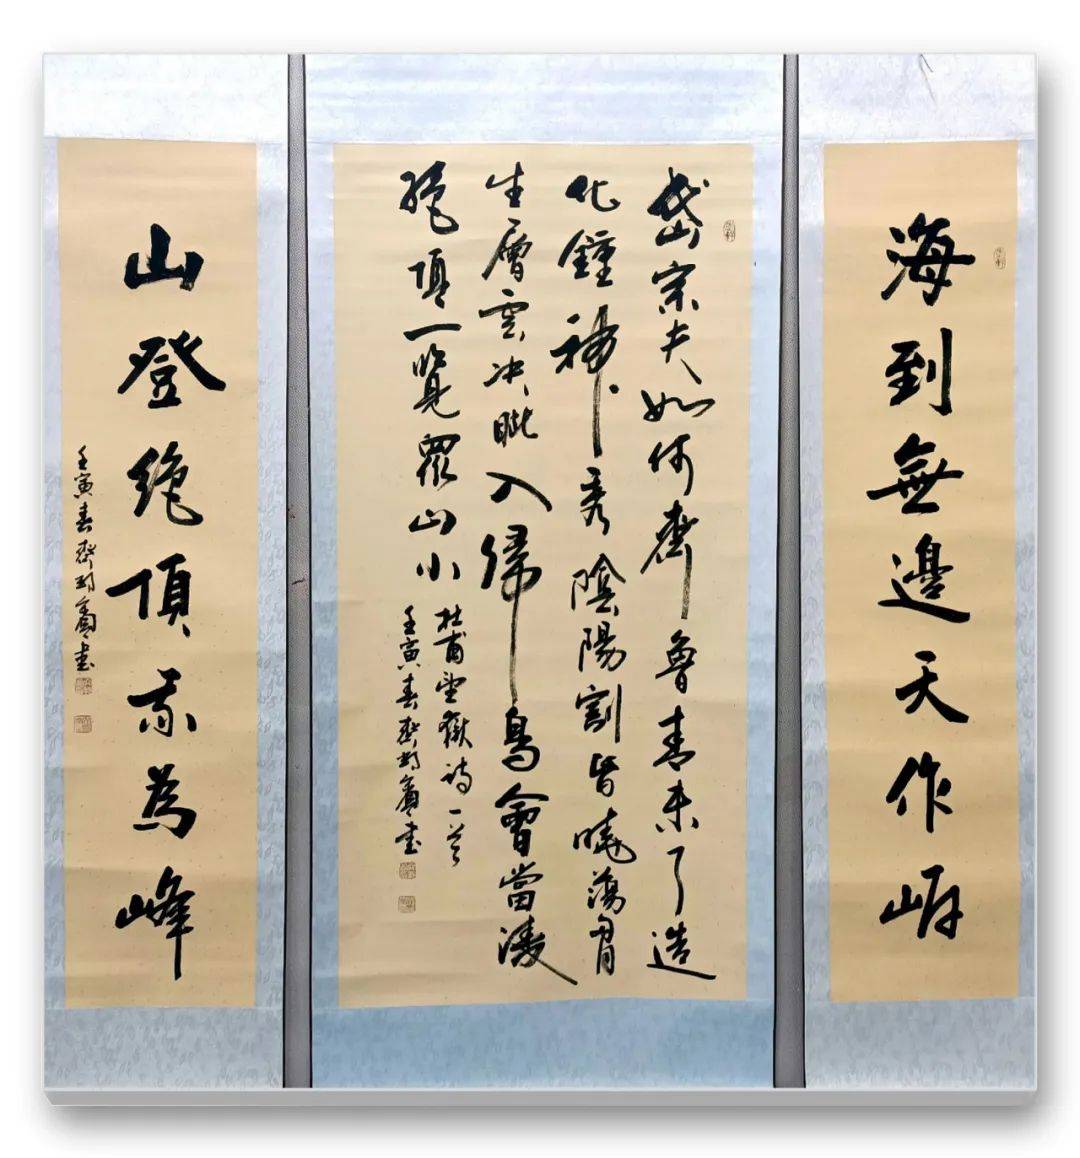 海到無邊天作岸
岱宗夫如何齊魯青未了造
化鍾神秀陰陽割昏曉蕩胸
生層雲決眦入歸鳥會當凌
絶頂一覽眾山小
杜甫望嶽詩一首
壬寅春書
山登絶頂我為峰
壬寅春書